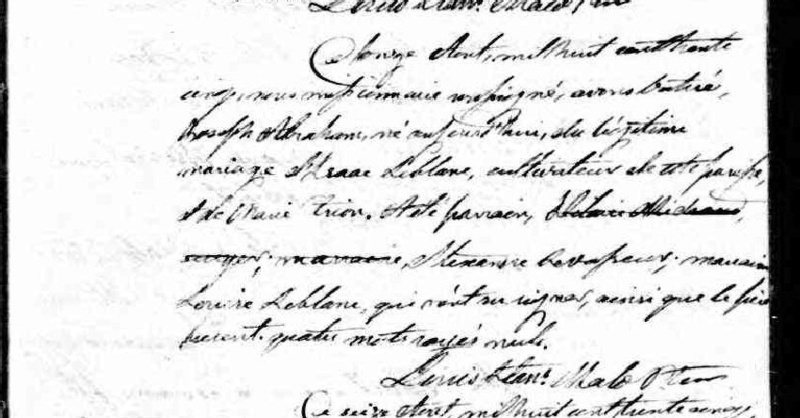 Louis Stans. Malo Ptre
Ce onze Aout, mil huit cent trente
cinq, nous missionnaire soussigné, avons batisé,
Joseph Abraham, né aujourd'hui, du légitime
mariage d'Isaac Leblanc, cultivateur de cette paroisse,
& de Marie Trion. A été parrain,
marraine, Alexandre Levasseur; marraine
Louise Leblanc, qui n'ont su signer, ainsi que le père
present. quatre mots rayés nuls.
Louis Stans. Malo Ptre
Ce seize Aout, mil huit cent trente cinq,